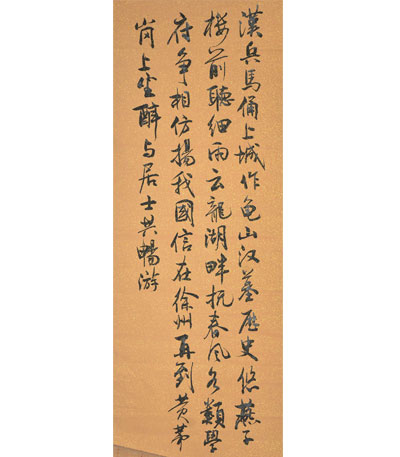 漢兵馬俑上城作龟山汉墓歷史悠燕子
楼前聽細雨云龍湖畔抗春风各類學
府争相仿揚我國信在徐州再到黄茅
岗上坐醉与居士共暢游